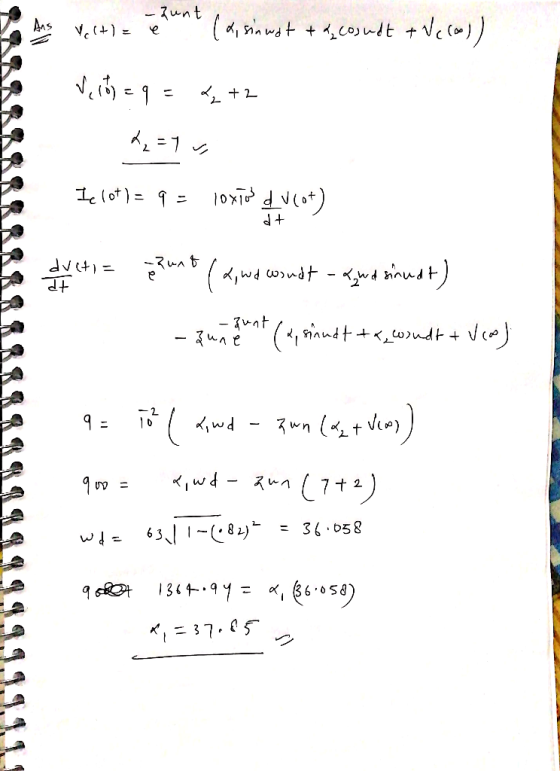 Ans Vc(t) = e^-ζωnt (α1 sinωdt + α2 cosωdt + Vc(∞))
Vc(0+) = 9 = α2 + 2
α2 = 7
Ic(0+) = 9 = 10x10^-3 d/dt V(0+)
dv(t)/dt = e^-ζωnt (α1 ωd cosωdt - α2 ωd sinωdt)
- ζωn e^-ζωnt (α1 sinωdt + α2 cosωdt + V(∞))
9 = 10^-2 ( α1 ωd - ζωn (α2 + V(∞))
900 = α1 ωd - ζωn (7+2)
ωd = 63 √1-(.82)^2 = 36.058
1364.94 = α1 (36.058)
α1 = 37.85